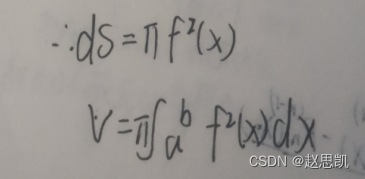 ∴dS=πf²(x)
V=π∫ₐᵇf²(x)dx
CSDN @赵思凯